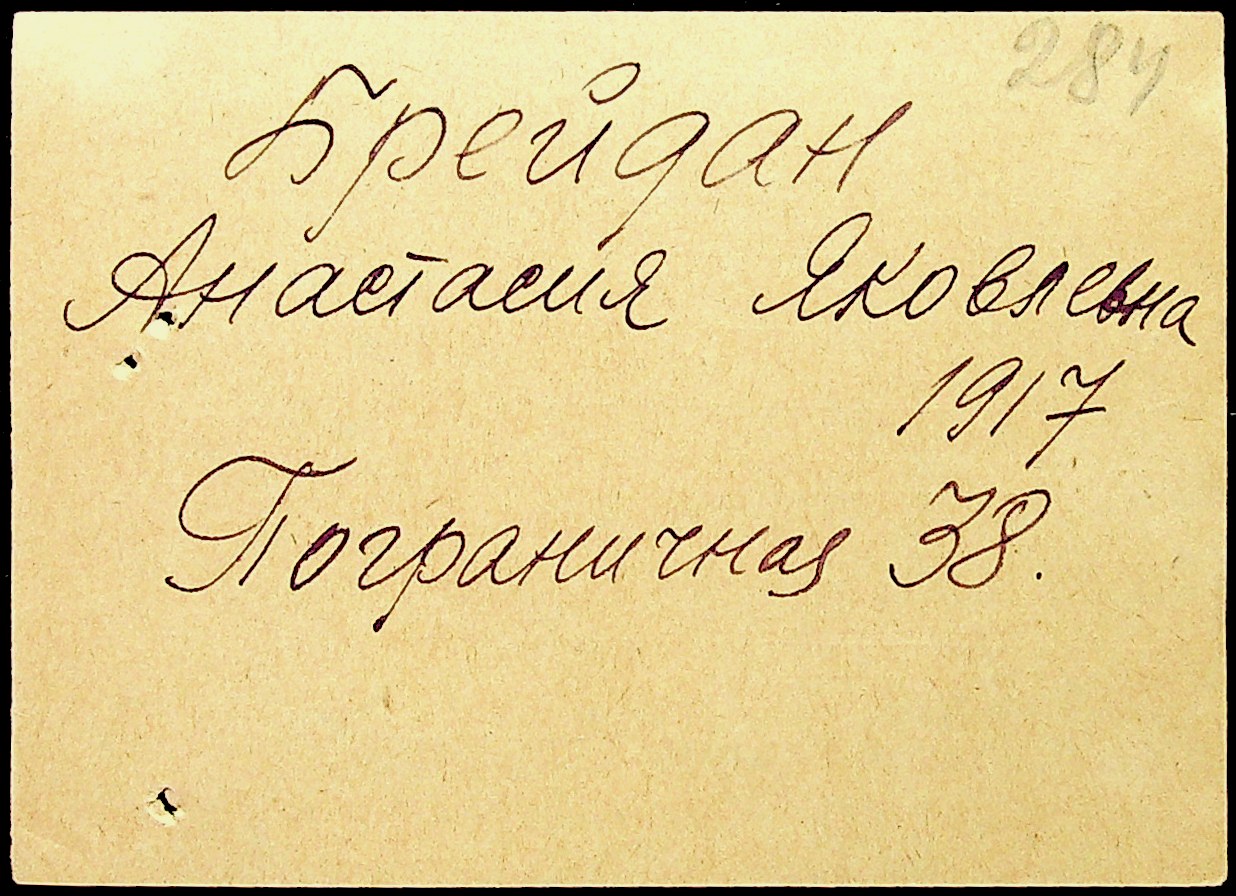 284
Брейдан
Анастасия Яковлевна
1917
Пограничная 38.